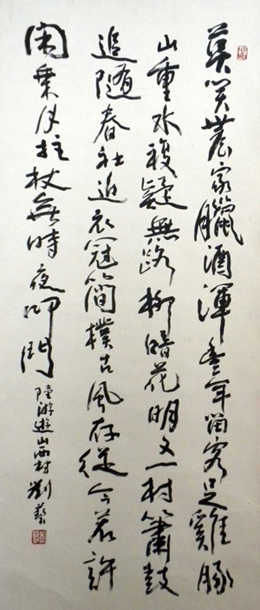 莫笑農家臘酒渾豐年留客足雞豚
山重水複疑無路柳暗花明又一村簫鼓
追隨春社近衣冠簡樸古風存從今若許
閑乘月拄杖無時夜叩門
陸游遊山西村 劉藝